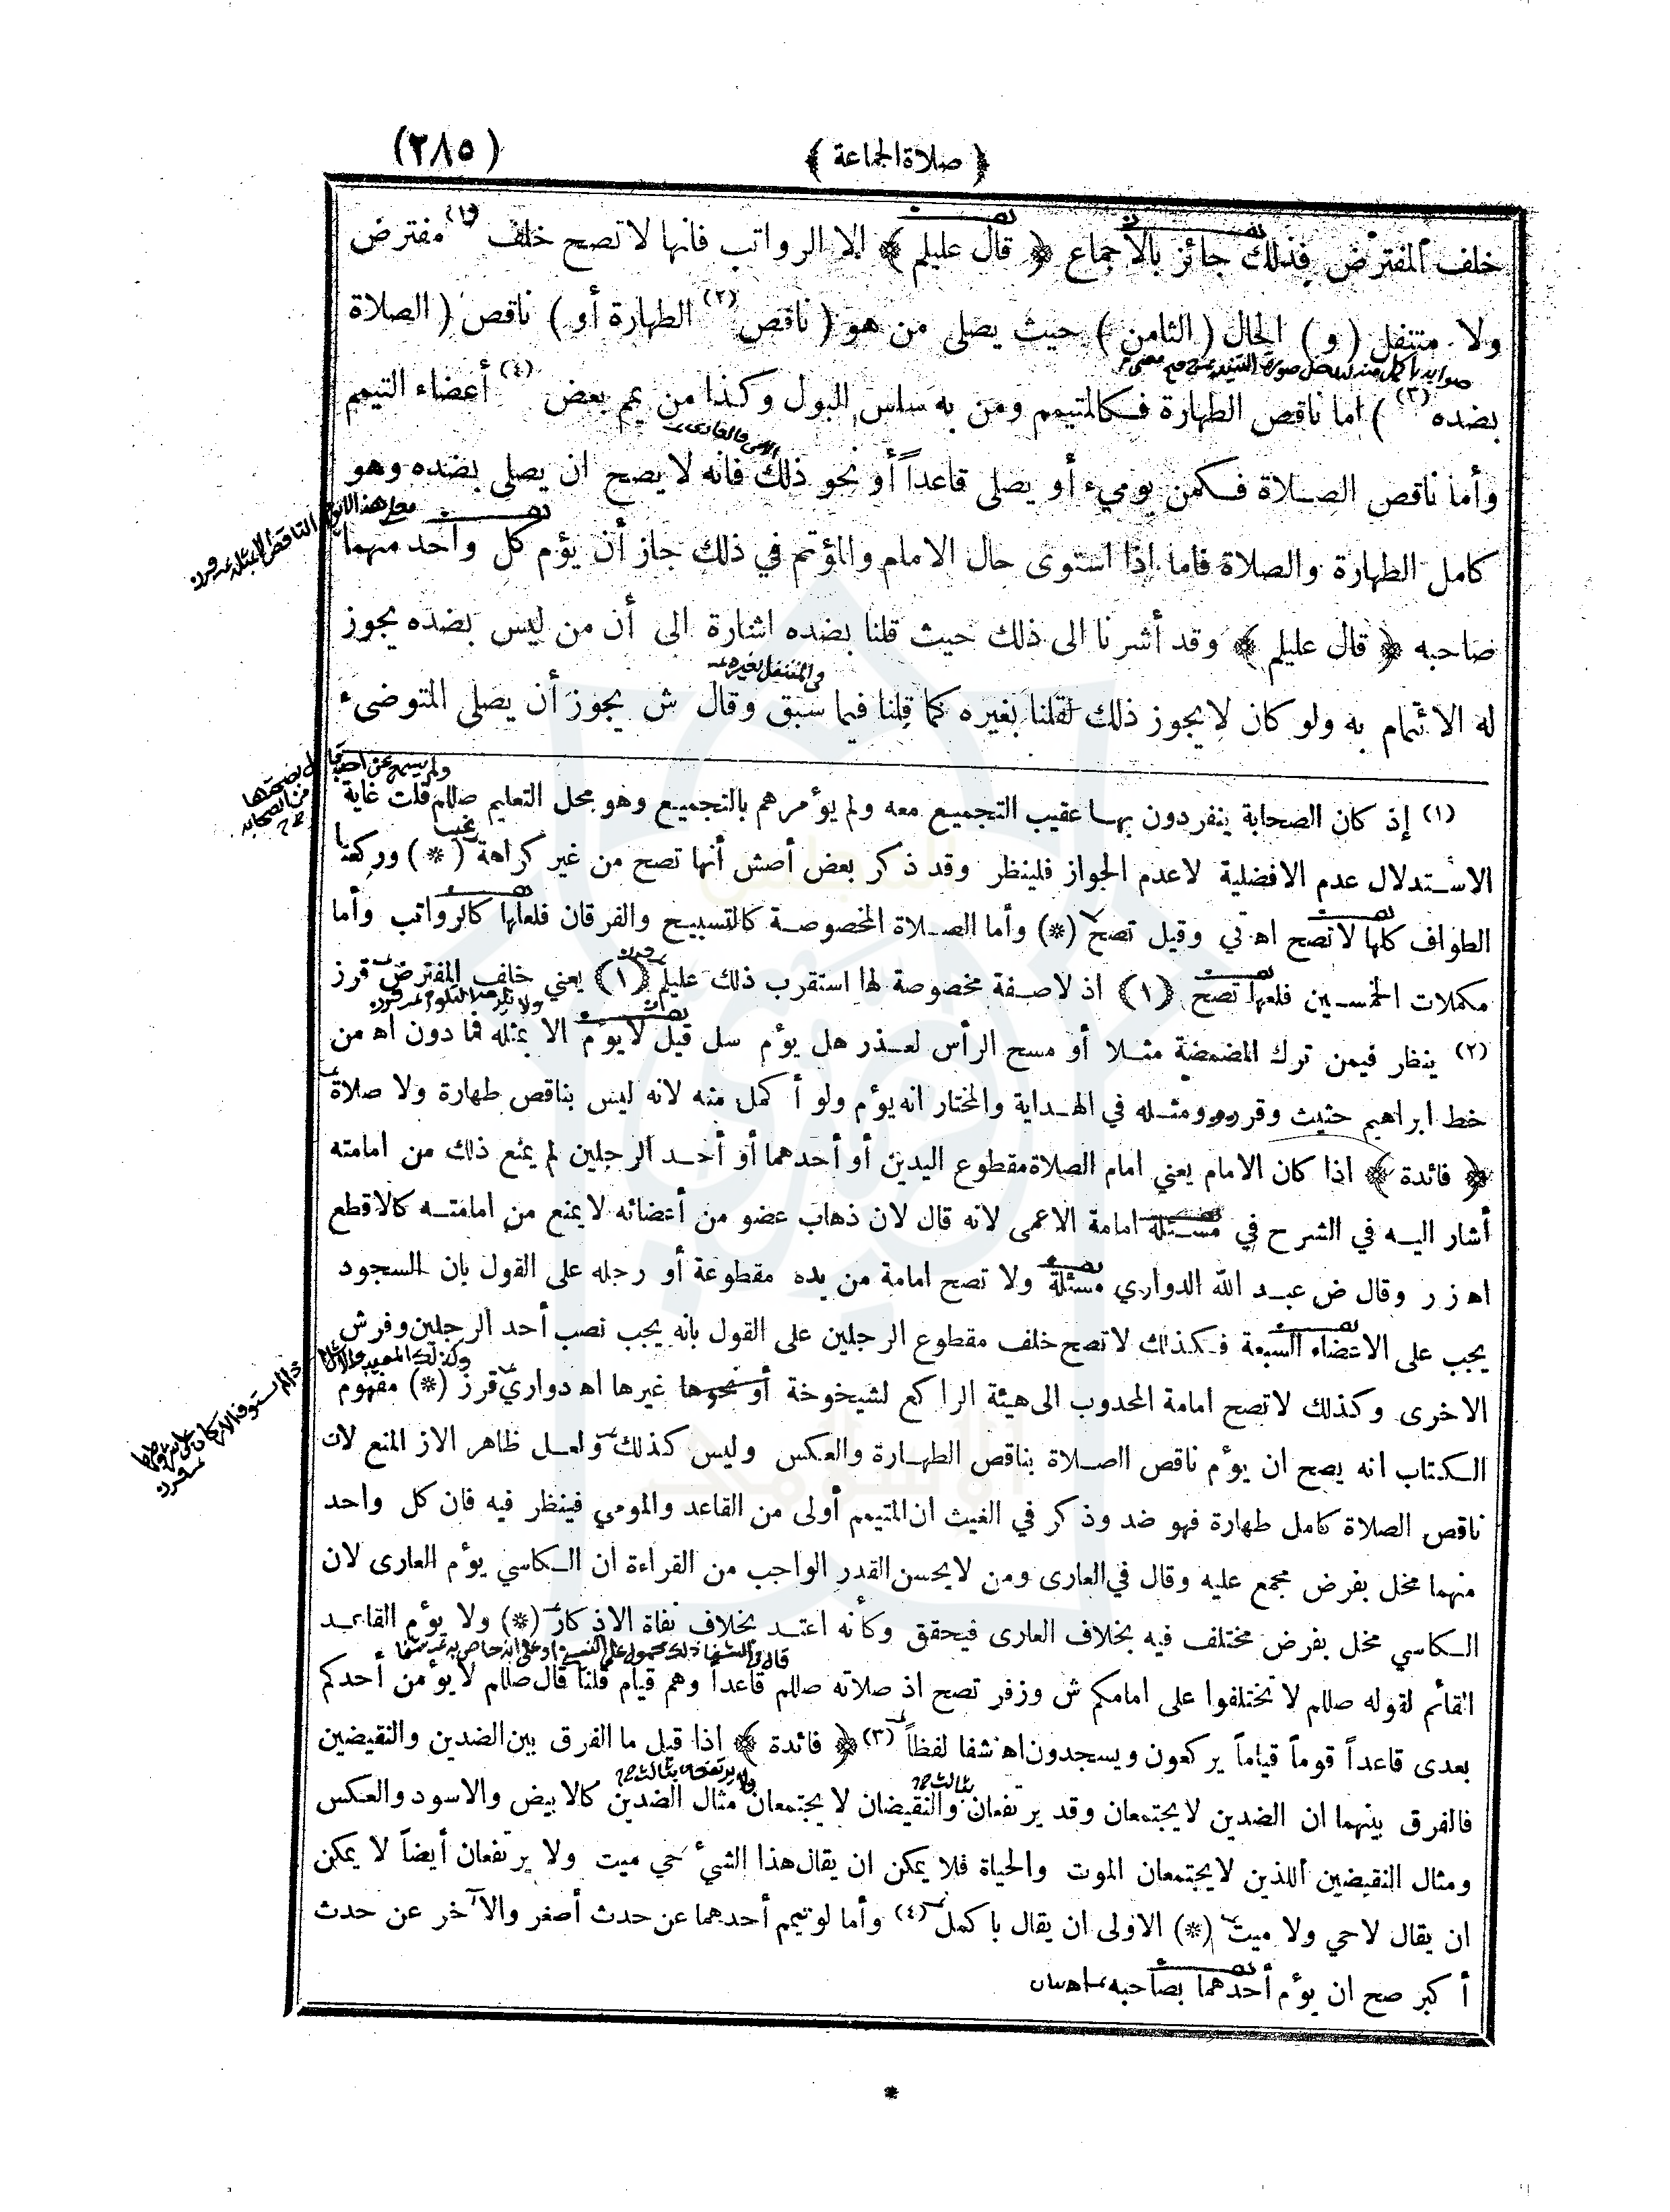 ﴿ صلاة الجماعة ﴾ (٢٨٥)
خلف المفترض فذلك جائز بالاجماع ﴿ قال عليلم ﴾ الا الرواتب فانها لا تصح خلف (١) مفترض
ولا متنفل ( و ) الحال ( الثامن ) حيث يصلى من هو ( ناقص (٢) الطهارة أو ) ناقص ( الصلاة
بضده (٣) ) اما ناقص الطهارة فكالمتيمم ومن به سلس البول وكذا من يمم بعض (٤) أعضاء التيمم
وأما ناقص الصلاة فكمن يوميء أو يصلى قاعداً أو نحو ذلك فانه لا يصح ان يصلى بضده وهو
كامل الطهارة والصلاة فاما اذا استوى حال الامام والمؤتم في ذلك جاز أن يؤم كل واحد منهما
صاحبه ﴿ قال عليلم ﴾ وقد أشرنا الى ذلك حيث قلنا بضده اشارة الى أن من ليس بضده يجوز
والمتنفل بغيره
له الائتمام به ولو كان لا يجوز ذلك لقلنا بغيره كما قلنا فيما سبق وقال ش يجوز أن يصلى المتوضىء
(١) إذ كان الصحابة ينفردون بها عقيب التجميع معه ولم يؤمرهم بالتجميع وهو محل التعليم صللم قلت غاية
الاستدلال عدم الافضلية لا عدم الجواز فلينظر وقد ذكر بعض أصش أنها تصح من غير كراهة (*) وركعتا
الطواف كلها لا تصح اه تي وقيل تصح (*) وأما الصلاة المخصوصة كالتسبيح والفرقان فلعلها كالرواتب وأما
مكملات الخمسين فلعلها تصح (١) اذ لا صفة مخصوصة لها استقرب ذلك عليلم (١) يعني خلف المفترض قرز
(٢) ينظر فيمن ترك المضمضة مثلا أو مسح الرأس لعذر هل يؤم سل قيل لا يؤم الا بمثله فما دون اه من
خط ابراهيم حثيث وقرر ومثله في الهداية والمختار انه يؤم ولو أكمل منه لانه ليس بناقص طهارة ولا صلاة
﴿ فائدة ﴾ اذا كان الامام يعني امام الصلاة مقطوع اليدين أو أحدهما أو أحد الرجلين لم يمنع ذلك من امامته
أشار اليه في الشرح في مسئلة امامة الاعمى لانه قال لان ذهاب عضو من أعضائه لا يمنع من امامته كالاقطع
اه ز ر وقال ض عبد الله الدواري مسئلة ولا تصح امامة من يده مقطوعة أو رجله على القول بان السجود
يجب على الاعضاء السبعة فكذلك لا تصح خلف مقطوع الرجلين على القول بانه يجب نصب أحد الرجلين وفرش
الاخرى وكذلك لا تصح امامة المحدوب الى هيئة الراكع لشيخوخة أو نحوها غيرها اه دواري قرز (*) مفهوم
الكتاب انه يصح ان يؤم ناقص الصلاة بناقص الطهارة والعكس وليس كذلك ولعل ظاهر الاز المنع لان
ناقص الصلاة كامل طهارة فهو ضد وذكر في الغيث ان المتيمم أولى من القاعد والمومي فينظر فيه فان كل واحد
منهما مخل بفرض مجمع عليه وقال في العارى ومن لا يحسن القدر الواجب من القراءة ان الكاسي يؤم العارى لان
الكاسي مخل بفرض مختلف فيه بخلاف العارى فيحقق وكأنه اعتد بخلاف نفاة الاذكار (*) ولا يؤم القاعد
القائم لقوله صللم لا تختلفوا على امامكم ش وزفر تصح اذ صلاته صللم قاعداً وهم قيام قلنا قال صللم لا يؤمن أحدكم
بعدى قاعداً قوماً قياماً يركعون ويسجدون اه شفا لفظاً (٣) ﴿ فائدة ﴾ اذا قيل ما الفرق بين الضدين والنقيضين
بثالث ولا يرتفعان بثالث
فالفرق بينهما ان الضدين لا يجتمعان وقد يرتفعان والنقيضان لا يجتمعان مثال الضدين كالابيض والاسود والعكس
ومثال النقيضين اللذين لا يجتمعان الموت والحياة فلا يمكن ان يقال هذا الشيء حي ميت ولا يرتفعان أيضاً لا يمكن
ان يقال لا حي ولا ميت (*) الاولى ان يقال باكمل (٤) وأما لو تيمم أحدهما عن حدث أصغر والآخر عن حدث
أكبر صح ان يؤم أحدهما بصاحبه